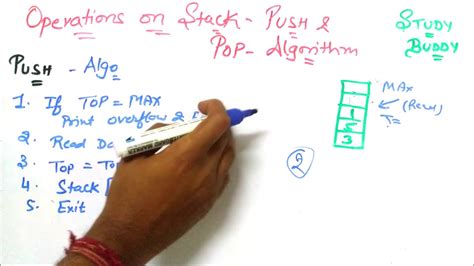 Operations on Stack - Push &
Pop - Algorithm
Study
Buddy
Push - Algo
1. If TOP = MAX
Print overflow &
2. Read Da
3. TOP = TO
4. Stack [
5. Exit
MAX
1
5
3
T=
2